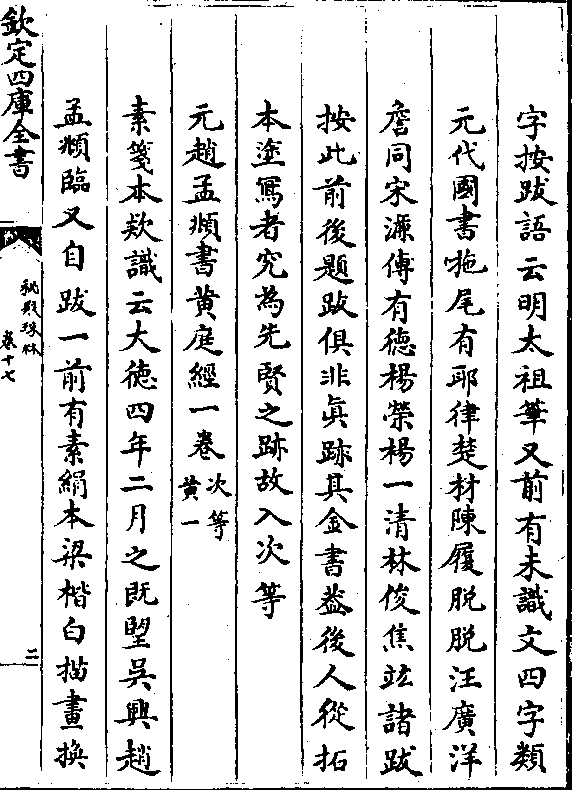 字按跋語云明太祖筆又前有未識文四字類
元代國書咃尾有耶律楚材陳履脱脱汪廣洋
詹同宋濂傅有德楊榮楊一清林俊焦竑諸跋
按此前後題跋俱非真跡其金書葢後人從拓
本塗寫者究為先賢之跡故入次等
元趙孟頫書黄庭經一卷 次等
黄一
素箋本欵識云大徳四年二月之既朢吳興趙
孟頫臨又自跋一前有素絹本梁楷白描畫換
欽定四庫全書
秘殿珠林
卷十七
二